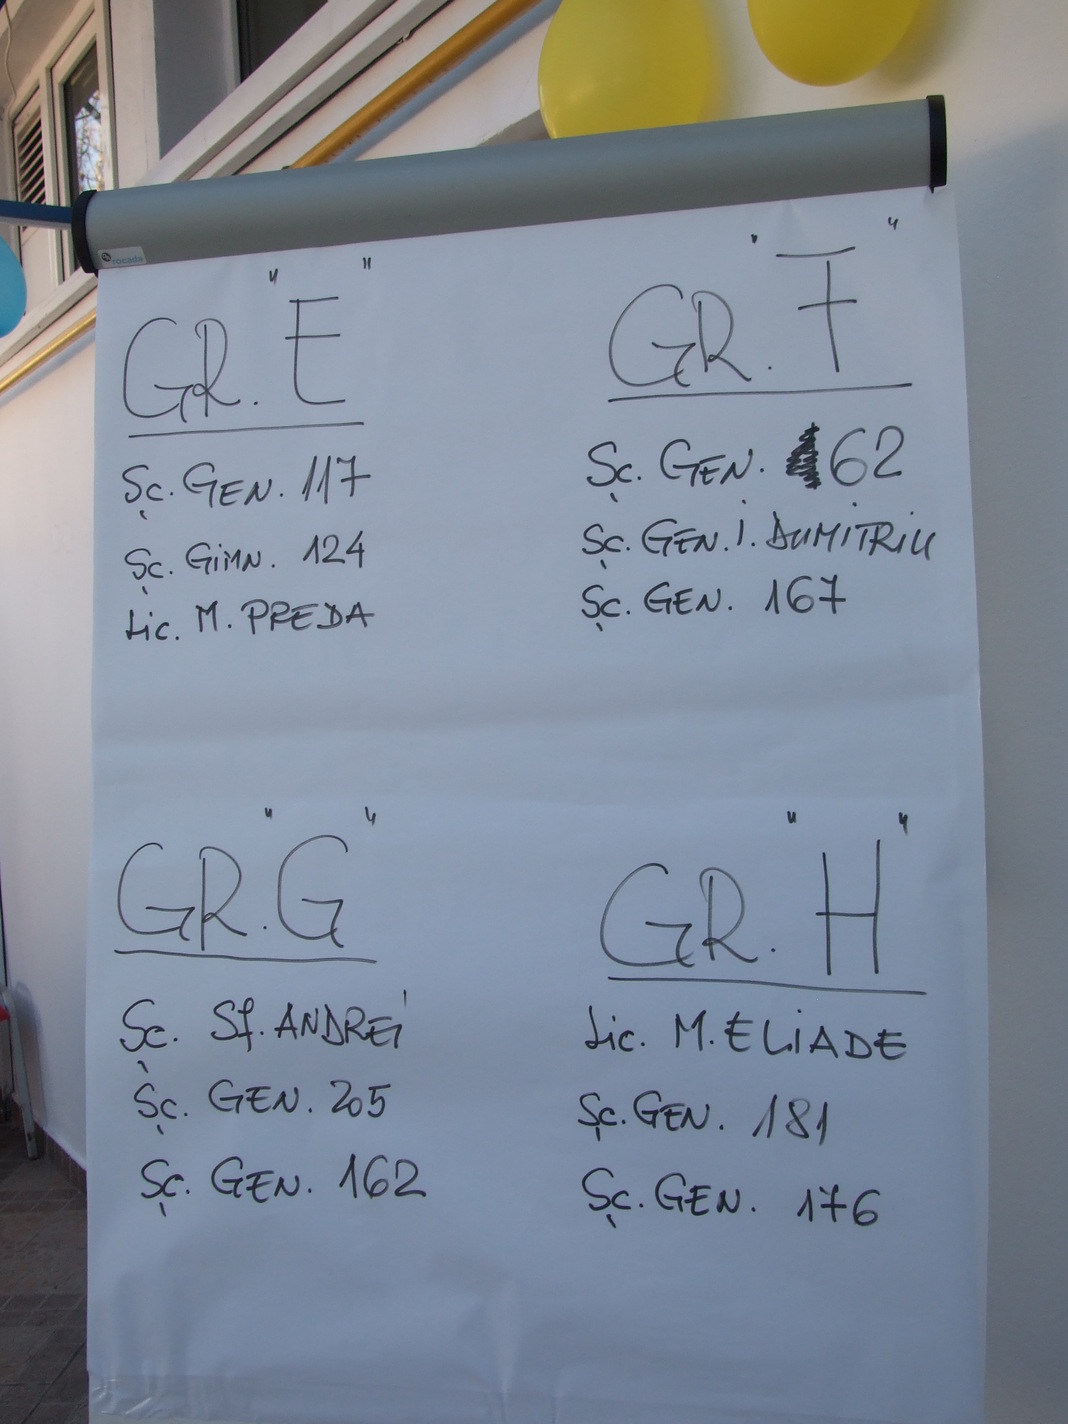 rocada
GR. "E"
Șc. GEN. 117
Șc. GiMN. 124
Lic. M. PREDA
GR. "F"
Șc. GEN. 62
Șc. GEN. I. DUMITRIU
Șc. GEN. 167
GR. "G"
Șc. Sf. ANDREI
Șc. GEN. 205
Șc. GEN. 162
GR. "H"
Lic. M. ELiADE
Șc. GEN. 181
Șc. GEN. 176